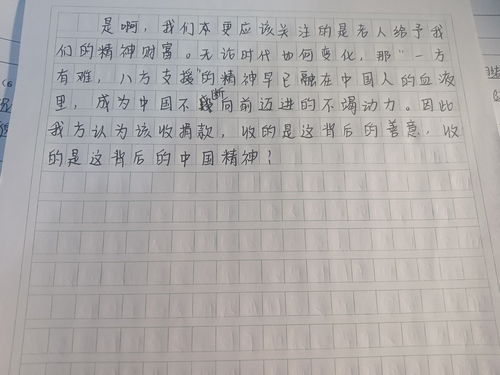 是啊，我们本更应该关注的是老人给予我
们的精神财富。无论时代如何变化，那“一方
有难，八方支援”的精神早已融在中国人的血液
里，成为中国不断向前迈进的不竭动力。因此
我方认为该收捐款，收的是这背后的善意，收
的是这背后的中国精神！